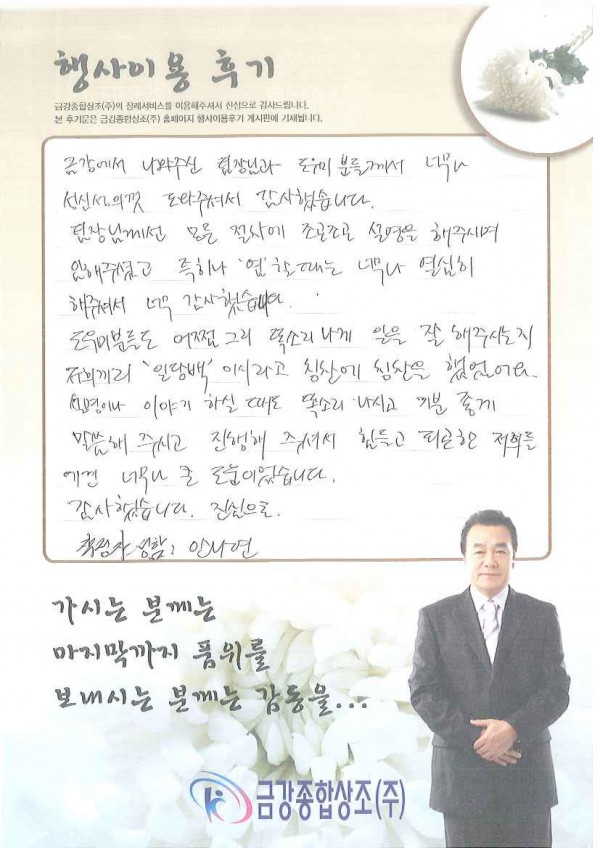 행사이용 후기
금강종합상조(주)의 장례서비스를 이용해주셔서 진심으로 감사드립니다.
본 후기문은 금강종합상조(주) 홈페이지 행사이용후기 게시판에 기재됩니다.
금강에서 나와주신 팀장님과 도우미 분들께서 너무나
성심성의껏 도와주셔서 감사했습니다.
팀장님께선 모든 절차에 조곤조곤 설명을 해주시며
임해주셨고 특히나 '염'할때는 너무나 열심히
해주셔서 너무 감사했습니다.
도우미분들도 어쩜 그리 똑소리 나게 일을 잘 해주시는지
저희끼리 '일당백' 이시라고 칭찬에 칭찬을 했었어요.
설명이나 이야기 하실 때도 똑소리 나시고 기분 좋게
말씀해 주시고 진행해 주셔서 힘들고 피곤한 저희들
에겐 너무나 큰 도움이었습니다.
감사했습니다. 진심으로.
작성자 성함 :
가시는 분께는
마지막까지 품위를
보내시는 분께는 감동을...
금강종합상조(주)